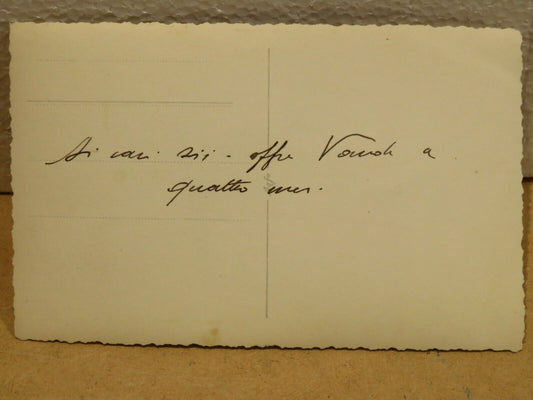 Ai cari zii - offre Wanda a
quattro mesi.